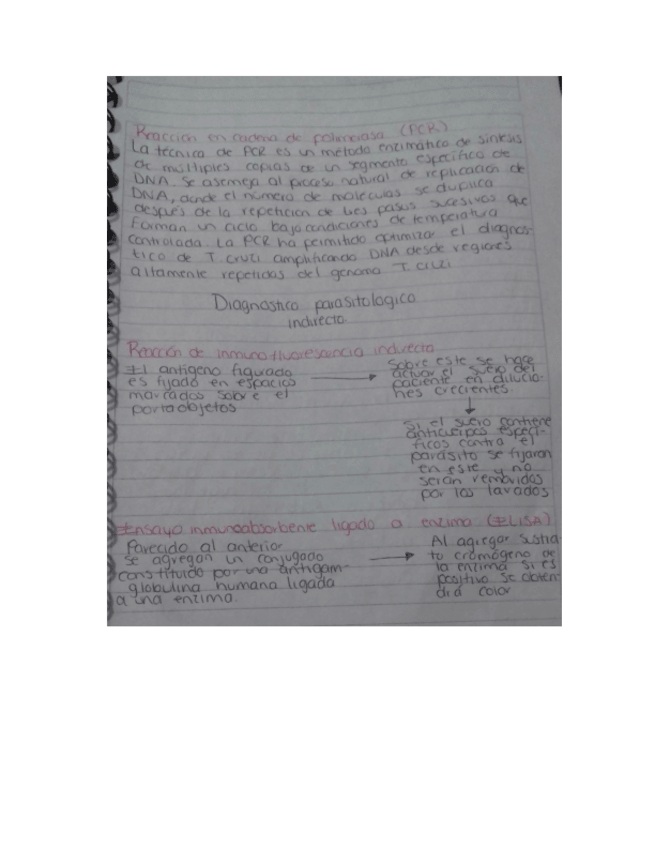 Reacción en cadena de polimerasa (PCR)
La técnica de PCR es un método enzimático de síntesis
de múltiples copias de un segmento específico de
DNA. Se asemeja al proceso natural de replicación de
DNA, donde el número de moléculas se duplica
después de la repetición de tres pasos sucesivos que
forman un ciclo bajo condiciones de temperatura
controlada. La PCR ha permitido optimizar el diagnos-
tico de T. cruzi amplificando DNA desde regiones
altamente repetidas del genoma T. cruzi
Diagnostico parasitologico
indirecto.
Reacción de inmunofluorescencia indirecta
El antígeno figurado
es fijado en espacios
marcados sobre el
portaobjetos
Sobre este se hace
actuar el suero del
paciente en dilucio-
nes crecientes.
Si el suero contiene
anticuerpos especí-
ficos contra el
parásito se fijaran
en este y no
serán removidos
por los lavados
Ensayo inmunoabsorbente ligado a enzima (ELISA)
Parecido al anterior
se agregan un conjugado
constituido por una antigam-
globulina humana ligada
a una enzima.
Al agregar sustra-
to cromógeno de
la enzima si es
positivo se obten-
drá color